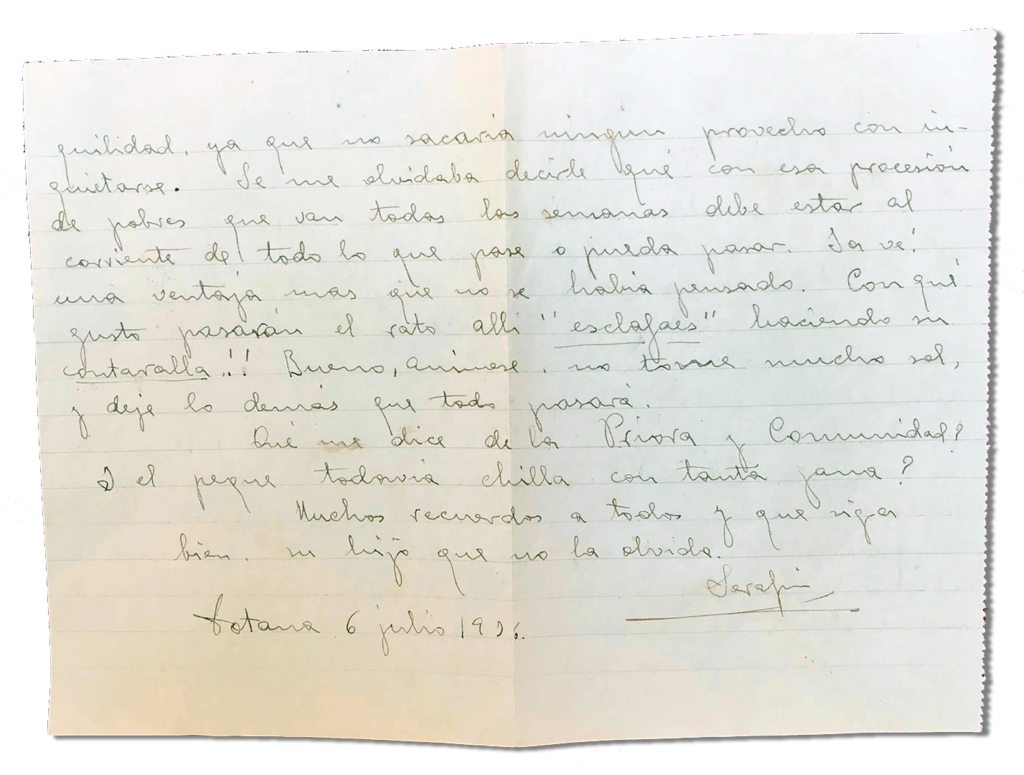 quilidad, ya que no sacaria ningun provecho con in-
quietarse. Se me olvidaba decirle que con esa procesión
de pobres que van todas las semanas debe estar al
corriente de todo lo que pase o pueda pasar. Ya ve!
una ventaja mas que no se habia pensado. Con qué
gusto pasarán el rato alli "esclafaes" haciendo su
contaralla!!! Bueno, animese, no tome mucho sol,
y deje lo demás que todo pasará.
Qué me dice de la Priora y Comunidad?
Y el peque todavia chilla con tanta gana?
Muchos recuerdos a todos y que siga
bien. su hijo que no la olvida.
Serafin
Totana 6 julio 1936.